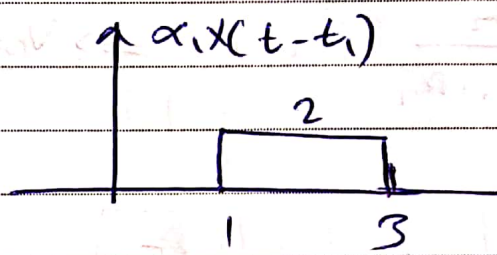 α₁x(t-t₁)
2
1 3